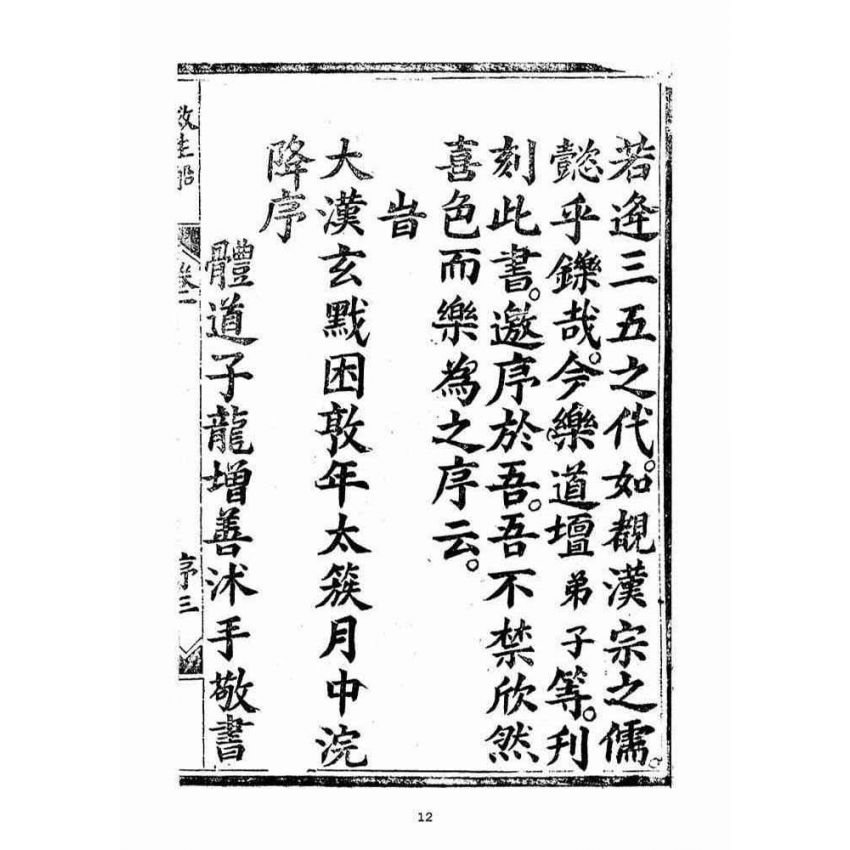 若逄三五之代。如覩漢宗之儒。
懿乎鑠哉。今樂道壇弟子等。刊
刻此書。邀序於吾。吾不禁欣然
喜色而樂為之序云。
旹
大漢玄黓困敦年太簇月中浣
降序
體道子龍增善沭手敬書
救生船 卷二 序三
12